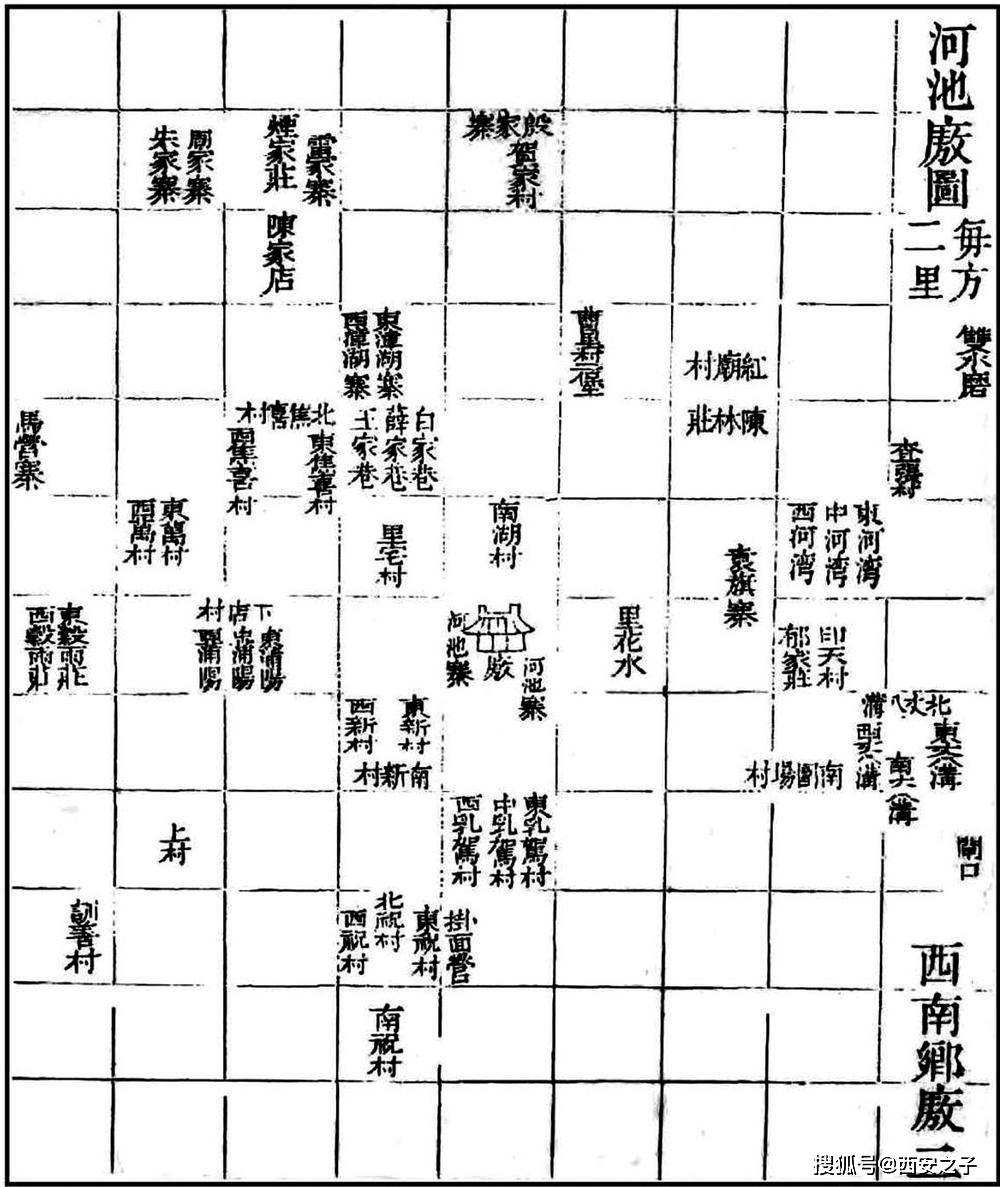 河池廒圖
每方
二里
雙水磨
殷家寨
賀家村
雷家寨
煙家莊
陳家店
廟家寨
朱家寨
紅廟村
陳林莊
東漳湖寨
西漳湖寨
白家巷
薛家巷
王家巷
北焦喜村
東焦喜村
西焦喜村
馬營寨
東河湾
中河湾
西河湾
袁旗寨
南湖村
里宅村
東萬村
西萬村
印天村
郁家莊
里花水
廒
河池寨
河池寨
下店村
東蒲陽
西蒲陽
東穀雨莊
西穀雨莊
北丈八溝
東丈八溝
南丈八溝
西丈八溝
南圍場村
東新村
西新村
南新村
閘口
東乳駕村
中乳駕村
西乳駕村
上村
掛面營
東祝村
北祝村
西祝村
南祝村
訓善村
西南鄉廒二
搜狐号@西安之子